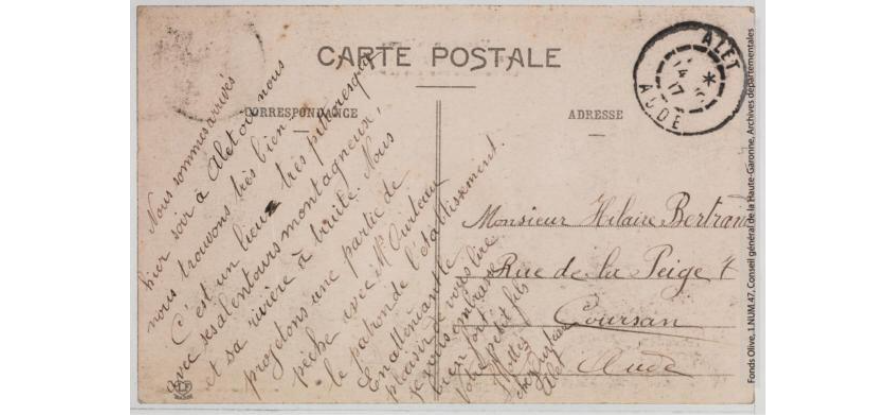 CARTE POSTALE
CORRESPONDANCE
ADRESSE
ALET
14
17
AUDE
Nous sommes arrivés
hier soir à Alet où nous
nous trouvons très bien.
C'est un lieu très pittoresque
avec ses alentours montagneux,
et sa rivière à truite. Nous
projetons une partie de
pêche avec Mr
le patron de l'établissement.
En attendant le
plaisir de vous lire
je vous embrasse
bien fort
Votre petit fils
chez
Alet
Monsieur Hilaire Bertrand
Rue de la Peige 7
Coursan
Aude
Fonds Olive, 1 NUM 47, Conseil général de la Haute-Garonne, Archives départementales